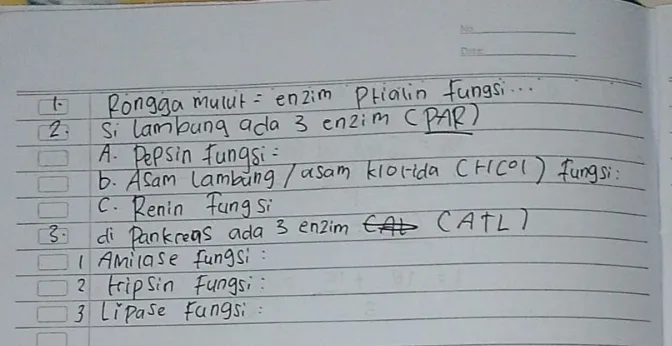 No
Date
1. Rongga mulut = enzim Ptialin fungsi...
2. Si lambung ada 3 enzim (PAR)
A. Pepsin fungsi =
b. Asam lambung / asam klorida (HCOl) fungsi:
C. Renin fungsi
3. di Pankreas ada 3 enzim (ATL)
1 Amilase fungsi :
2 tripsin fungsi :
3 Lipase fungsi :